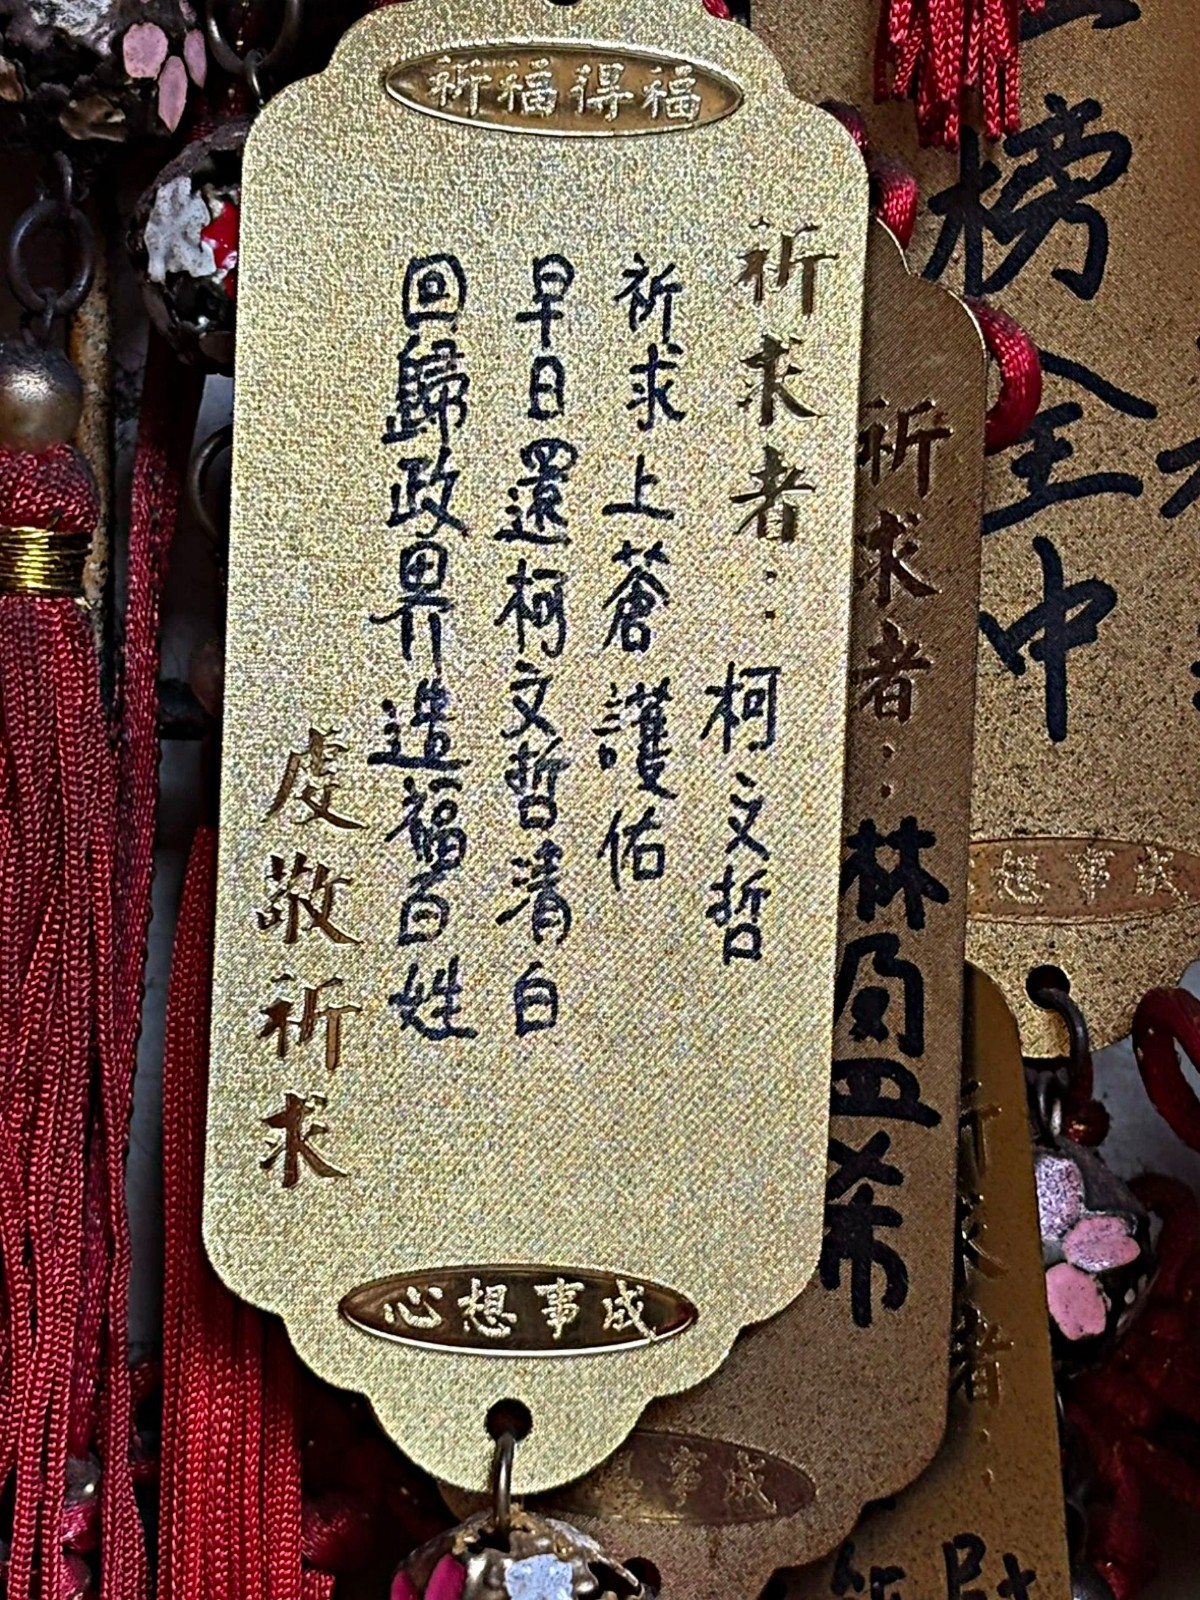 祈福得福
祈求者：柯文哲
祈求上蒼護佑
早日還柯文哲清白
回歸政界造福百姓
虔敬祈求
心想事成
祈求者：林員亞希
榜全中
想事成
事成